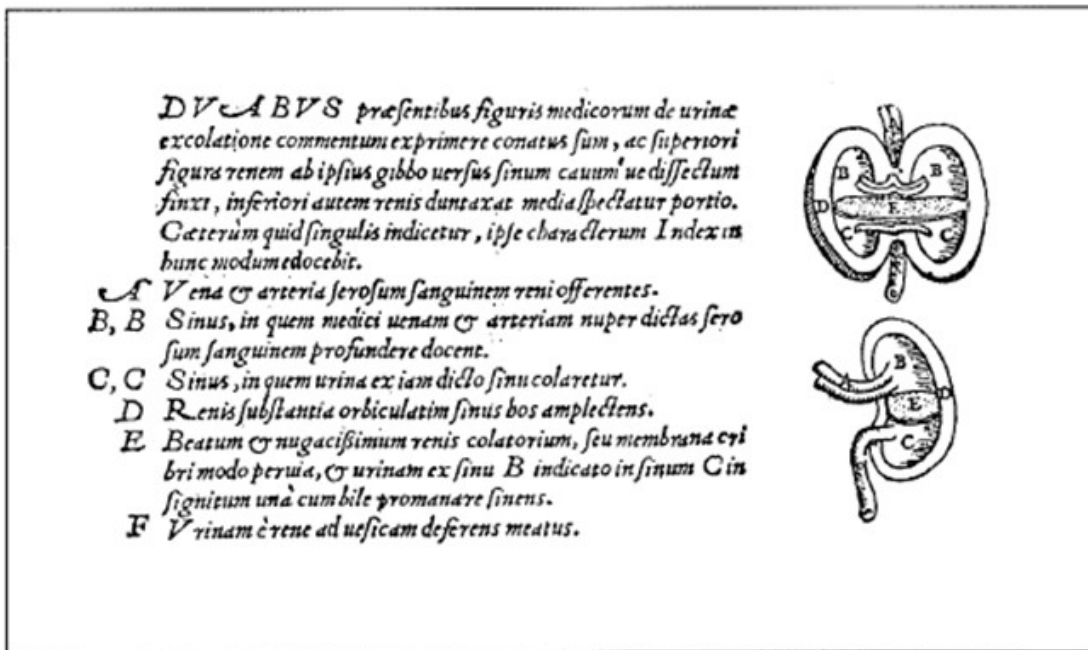 DVABVS præſentibus figuris medicorum de urinæ
excolatione commentum exprimere conatus ſum, ac ſuperiori
figura renem ab ipſius gibbo uerſus ſinum cauum'ue diſſectum
finxi, inferiori autem renis duntaxat media ſpectatur portio.
Cæterùm quid ſingulis indicetur, ipſe characterum Index in
hunc modum edocebit.
A Vena & arteria ſeroſum ſanguinem reni offerentes.
B, B Sinus, in quem medici uenam & arteriam nuper dictas ſero
ſum ſanguinem profundere docent.
C, C Sinus, in quem urina ex iam dicto ſinu colaretur.
D Renis ſubſtantia orbiculatim ſinus hos amplectens.
E Beatum & nugacißimum renis colatorium, ſeu membrana cri
bri modo peruia, & urinam ex ſinu B indicato in ſinum C in
ſignitum unà cum bile promanare ſinens.
F Vrinam è rene ad ueſicam deferens meatus.
B B
D E
C C
B
A
E D
C